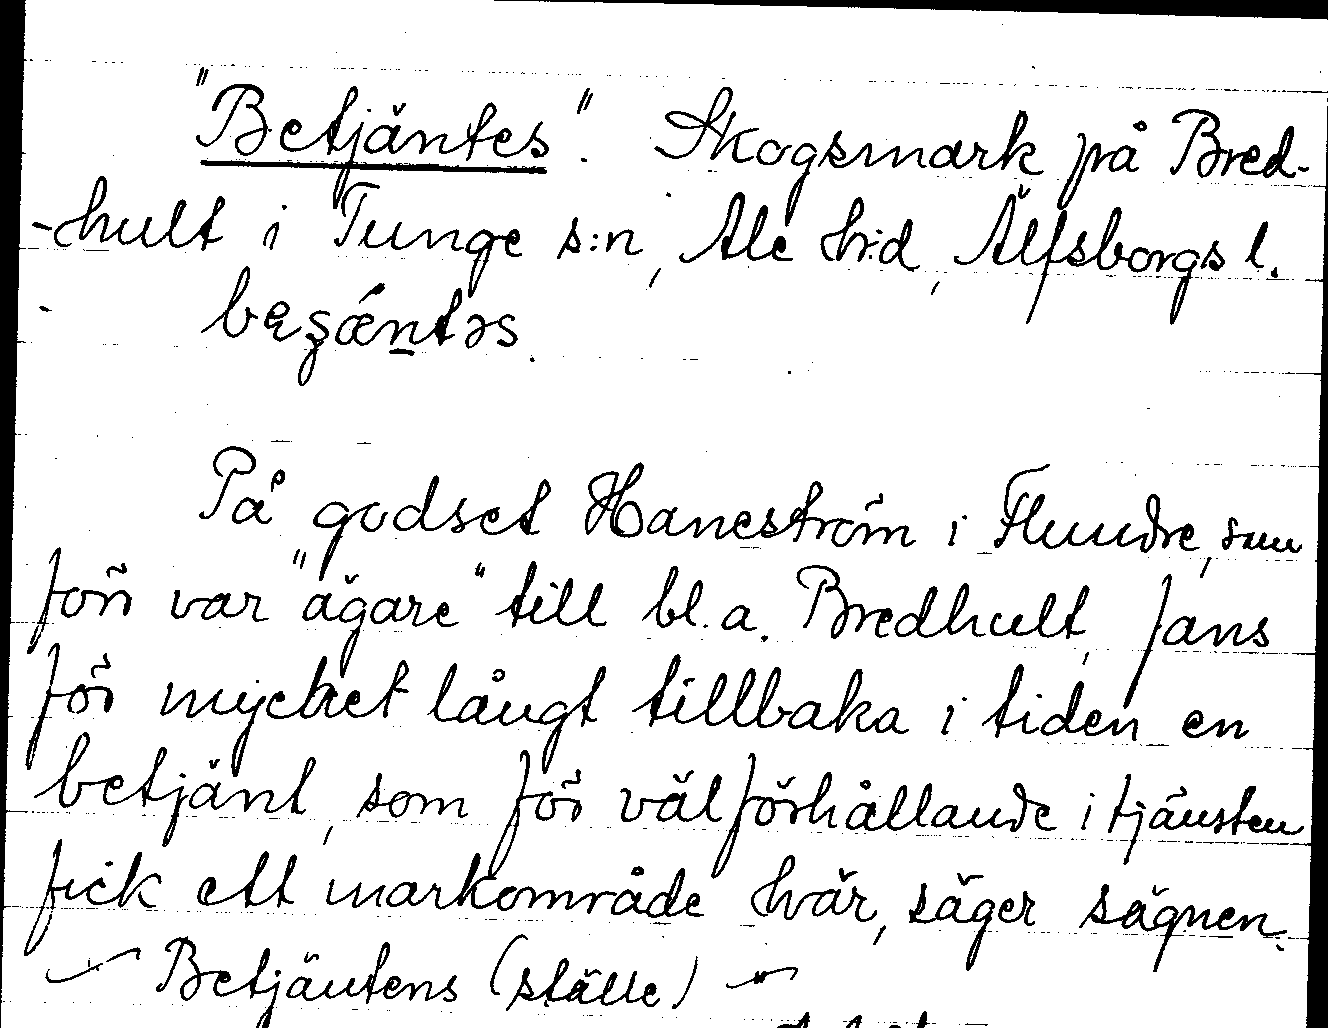 "Betjäntes". Skogsmark på Bred-
-hult i Tunge s:n, Ale h:d, Älfsborgs l.
bęʂǽntəs.
På godset Haneström i Flundre, som
förr var "ägare" till bl.a. Bredhult, fans
för mycket långt tillbaka i tiden en
betjänt, som för välförhållande i tjänsten
fick ett markområde här, säger sägnen.
Betjäntens (ställe)